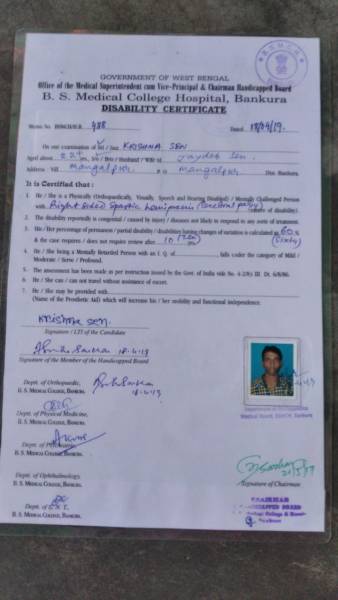 GOVERNMENT OF WEST BENGAL
Office of the Medical Superintendent cum Vice-Principal & Chairman Handicapped Board
B. S. Medical College Hospital, Bankura
DISABILITY CERTIFICATE
Memo No. 488 Dated
On our examination of Sri / Smt. KRISHNA SEN
Aged about 22+ Joydeb Sen.
Address : Vill Mangalpur P.O. Mangalpur Dist. Bankura.
It is Certified that :
1. He / She is a Physically (Orthopaedically, Visually, Speech and Hearing Disabled) / Mentally Challenged Person
with Right Sided Spastic hemiparesis (cerebral palsy) (nature of disability).
2. The disability reportedly is congenital / caused by injury / diseases not likely to respond to any sorts of treatment.
3. His / Her percentage of permanent / partial disability / disabilities having chances of variation is calculated as 60% (Sixty)
& the case requires / does not require review after 10 (Ten)
4. He / She being a Mentally Retarded Person with an I. Q. of falls under the category of Mild /
Moderate / Serve / Profound.
5. The assessment has been made as per instruction issued by the Govt. of India vide No. 4-2/83 III Dt. 6/8/86.
6. He / She can / can not travel without assistance of escort.
7. He / She may be provided with
(Name of the Prosthetic Aid) which will increase his / her mobility and functional independence.
Krishna Sen.
Signature / LTI of the Candidate
18-4-19
Signature of the Member of the Handicapped Board
Dept. of Orthopaedic,
B. S. MEDICAL COLLEGE, BANKURA.
18.4.19
Dept. of Physical Medicine,
B. S. MEDICAL COLLEGE, BANKURA.
Dept. of Psychiatric,
B. S. MEDICAL COLLEGE, BANKURA.
Dept. of Ophthalmology,
B. S. MEDICAL COLLEGE, BANKURA.
Dept. of E. N. T.,
B. S. MEDICAL COLLEGE, BANKURA.
Medical Board, BSMCH, Bankura
Signature of Chairman
CHAIRMAN
HANDICAPPED BOARD
Bankura